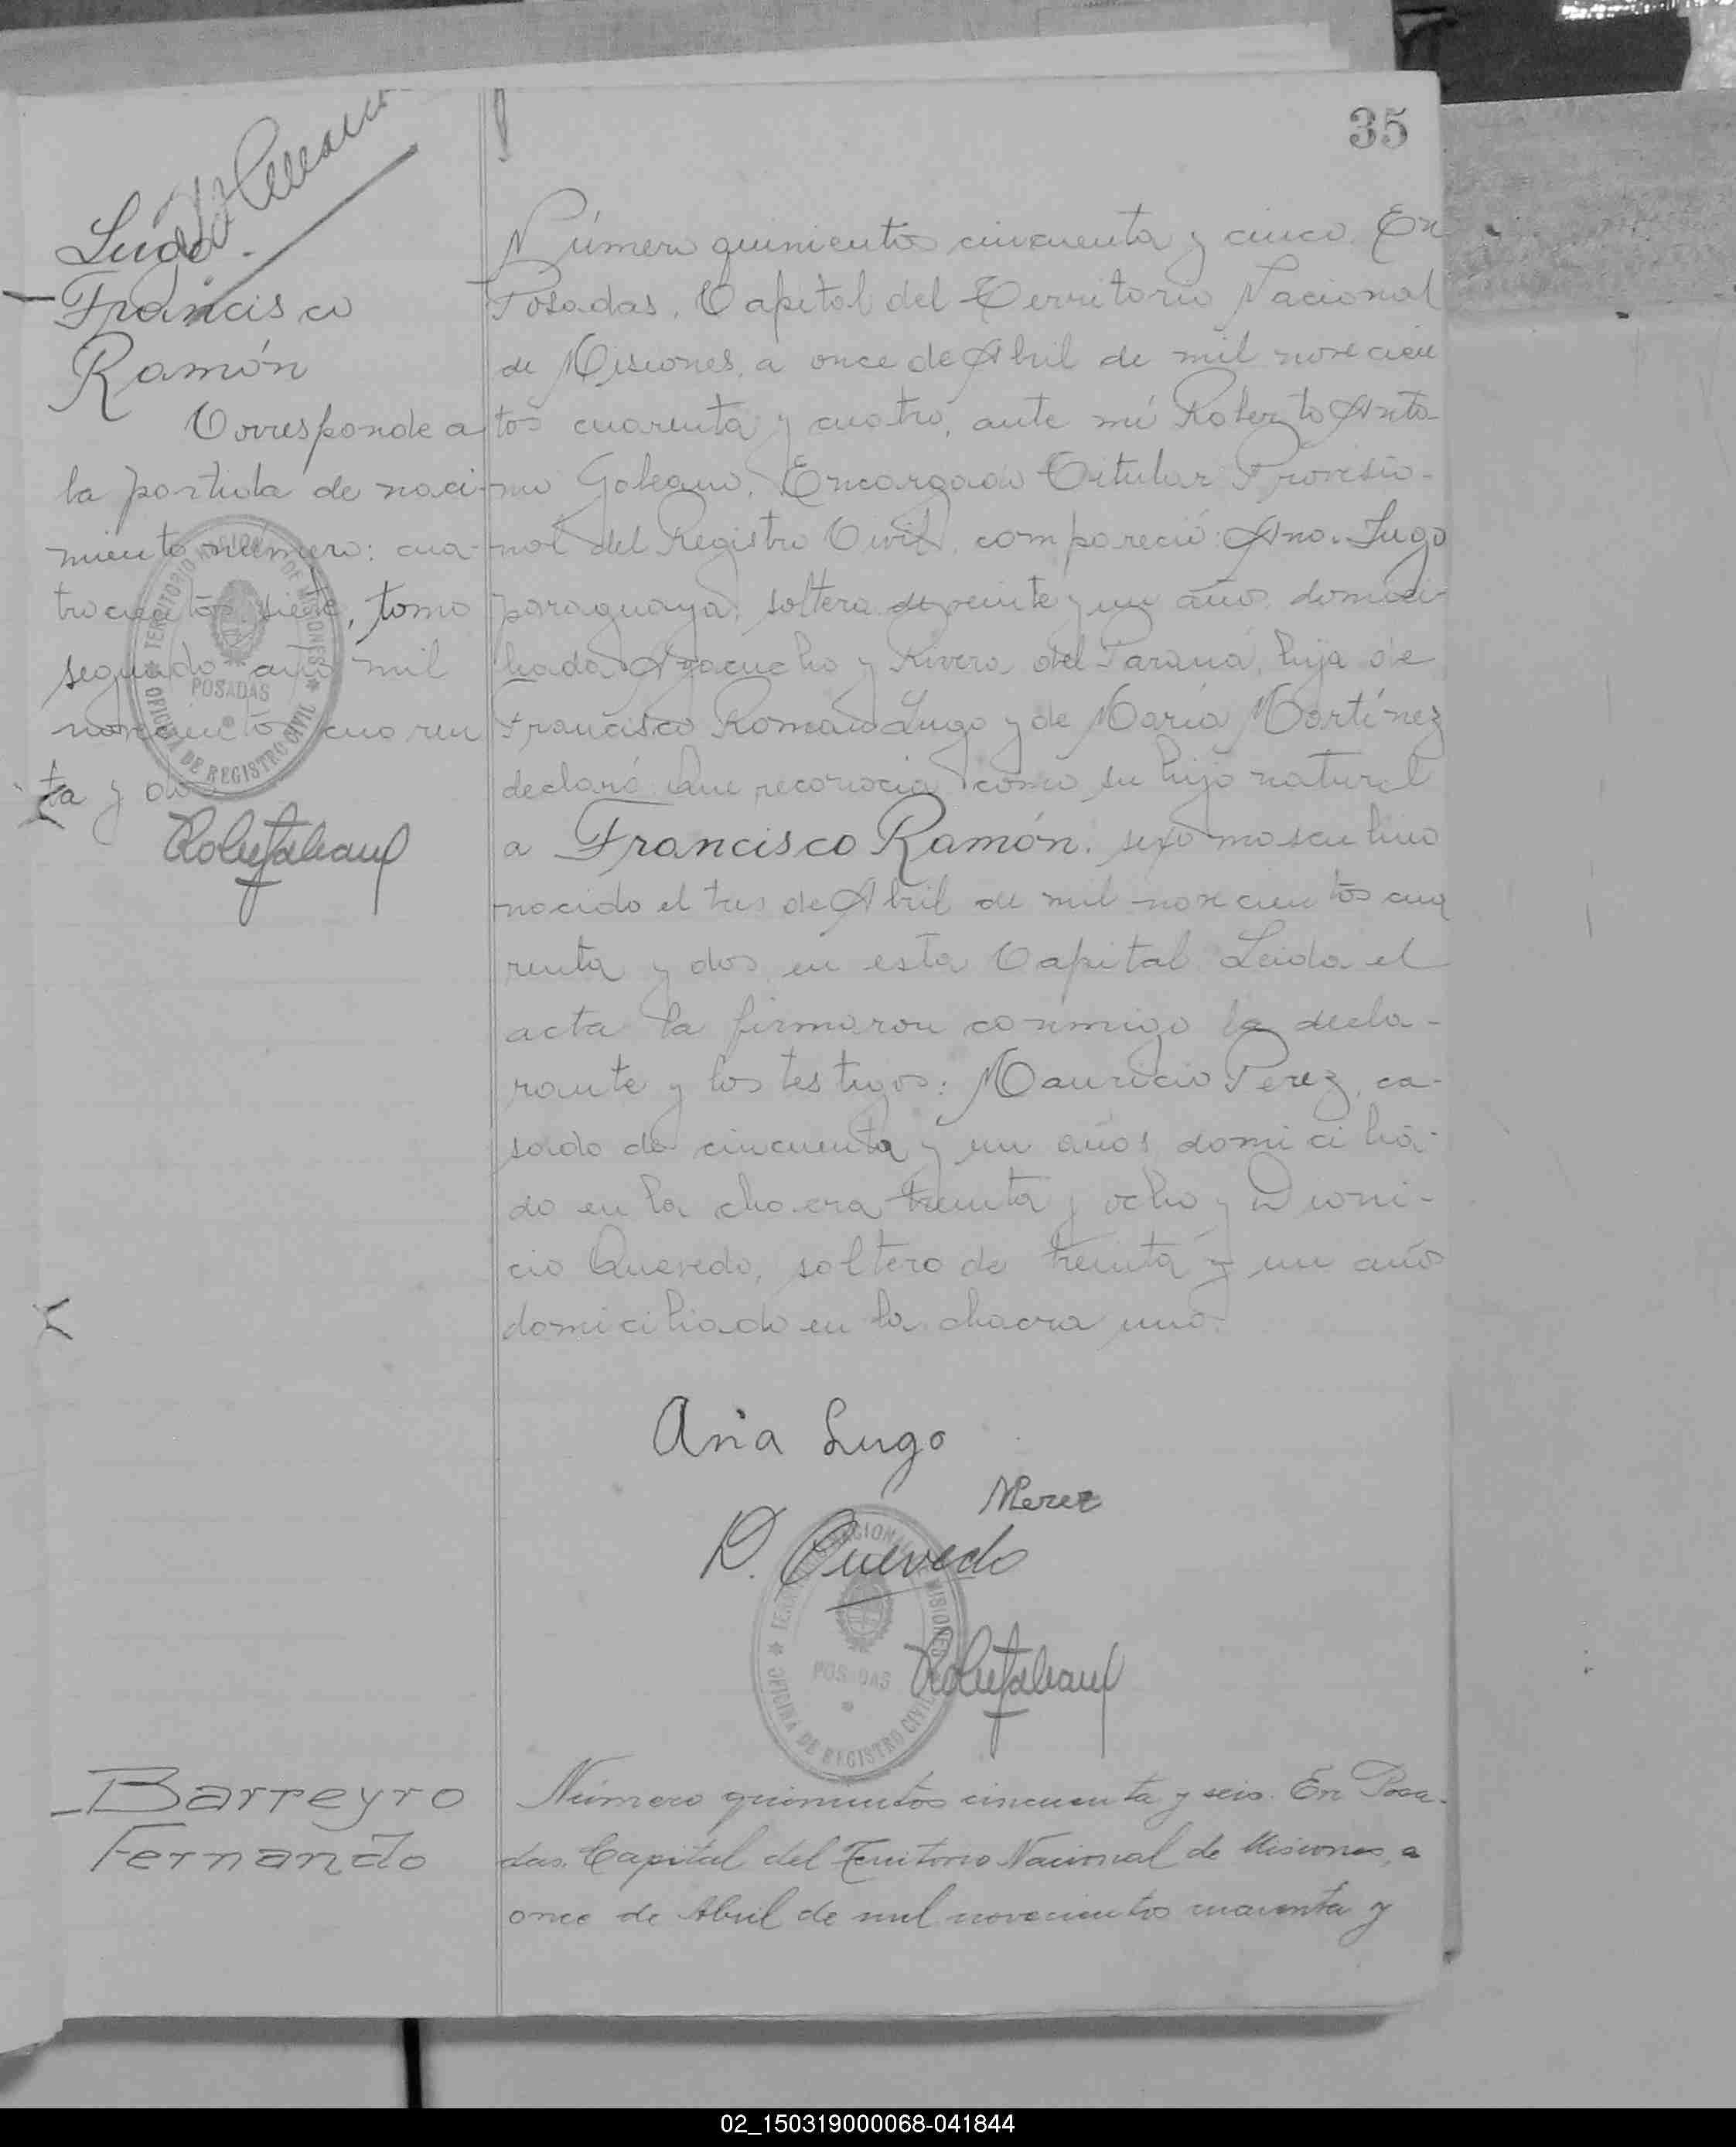 35
Lugo
Francisco
Ramón
Corresponde a
la partida de naci-
miento número: cua-
trocientos siete, tomo
segundo año mil
novecientos cuaren
ta y dos
TERRITORIO NACIONAL DE MISIONES
POSADAS
OFICINA DE REGISTRO CIVIL
Número quinientos cincuenta y cinco. En
Posadas, Capital del Territorio Nacional
de Misiones, a once de Abril de mil novecien
tos cuarenta y cuatro, ante mí Roberto Anto-
nio Galeano, Encargado Titular Provisio-
nal del Registro Civil, compareció: Ana Lugo
paraguaya, soltera de veinte y un años, domici-
liada Ayacucho y Rivera del Paraná, hija de
Francisco Roman Lugo y de María Martínez
declaró: Que reconocia como su hijo natural
a Francisco Ramón, sexo masculino
nacido el tres de Abril de mil novecientos cua
renta y dos en esta Capital. Leida el
acta la firmaron conmigo la decla-
rante y los testigos: Mauricio Perez, ca-
sado de cincuenta y un años domicilia-
do en la chacra treinta y ocho y Dioni-
cio Quevedo, soltero de treinta y un años
domiciliado en la chacra uno.
Ana Lugo
MPerez
D. Quevedo
TERRITORIO NACIONAL DE MISIONES
POSADAS
OFICINA DE REGISTRO CIVIL
Barreyro
Fernando
Número quinientos cincuenta y seis. En Posa-
das, Capital del Territorio Nacional de Misiones, a
once de Abril de mil novecientos cuarenta y
02_150319000068-041844